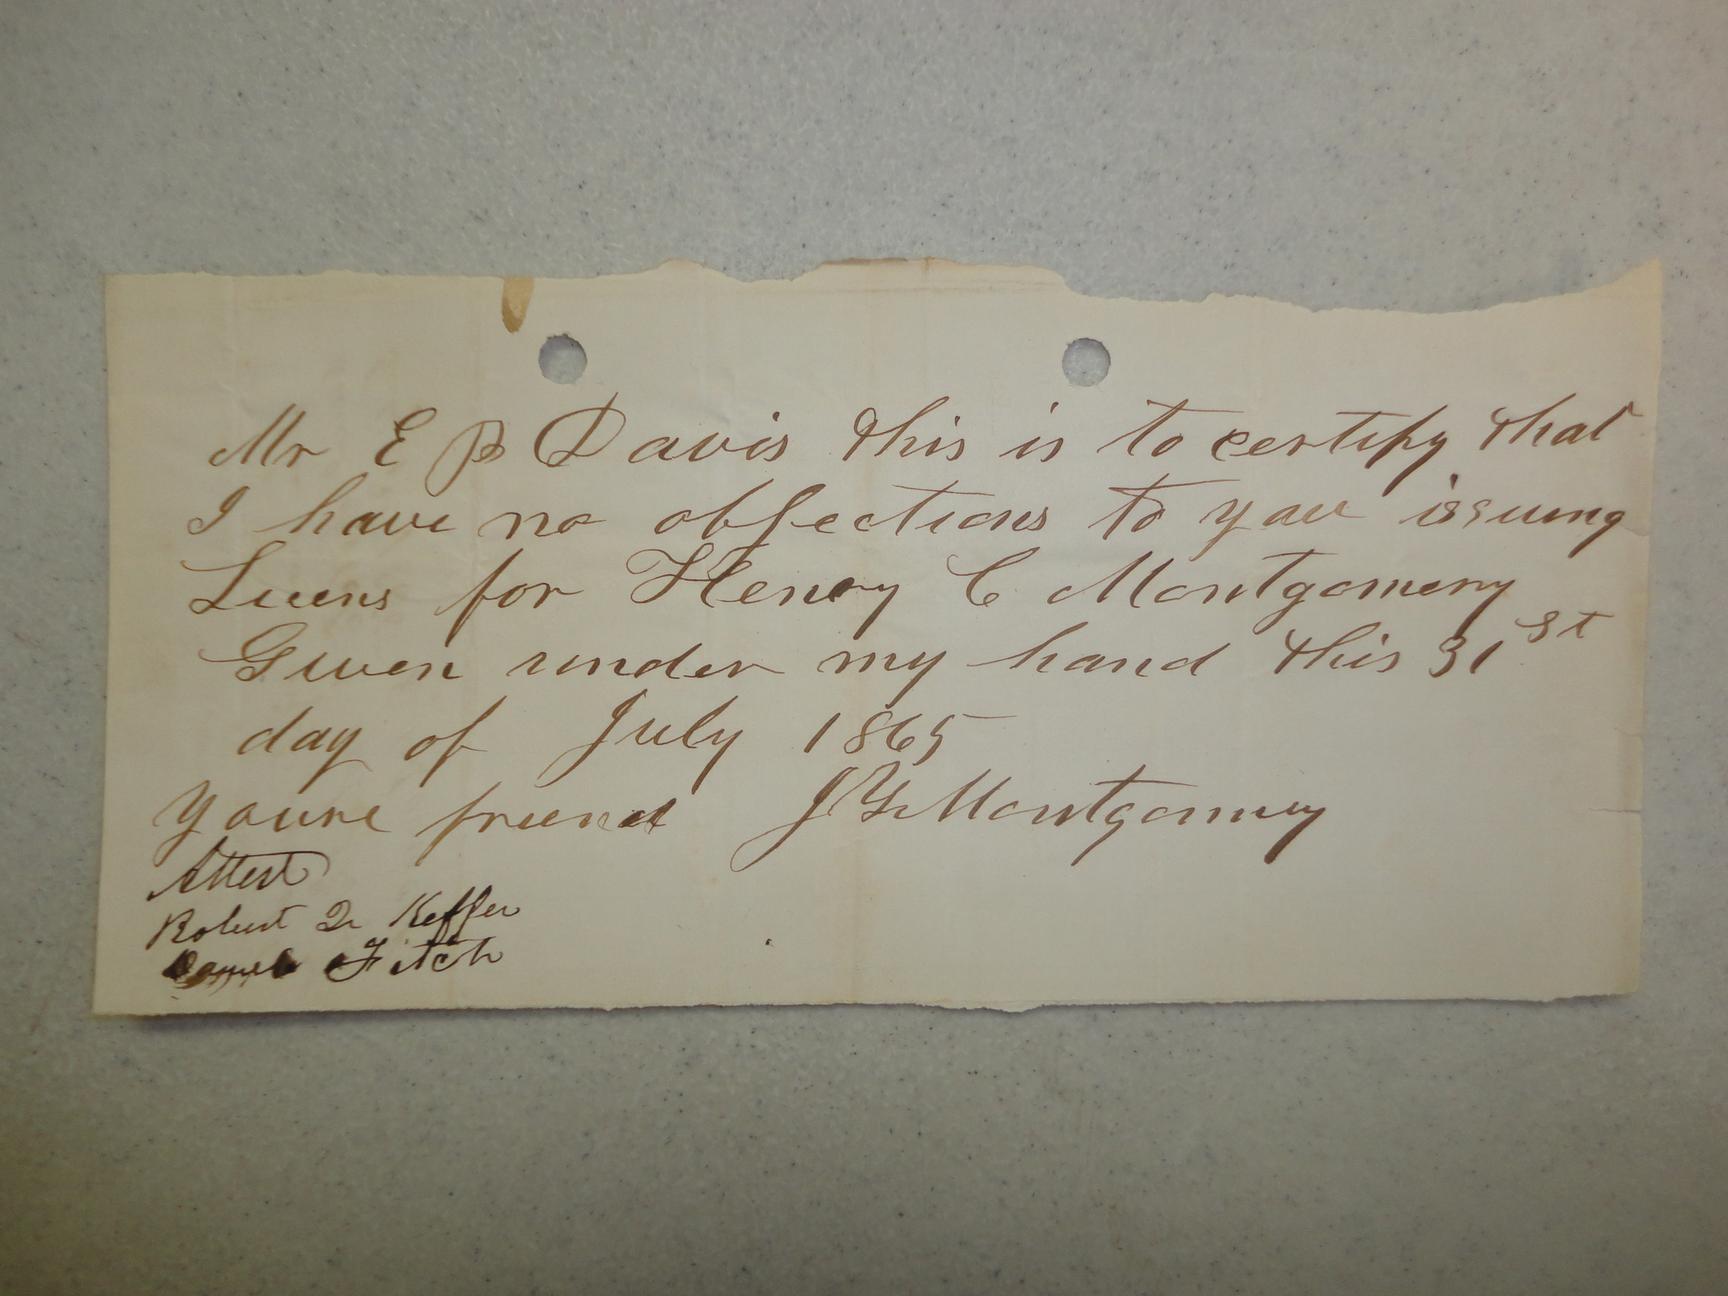 Mr E B Davis this is to certify that
I have no objections to you issuing
Licens for Henry C Montgomery
Given under my hand this 31st
day of July 1865
Youre friend J G Montgomery
Attest
Robert Keffer
Fitch